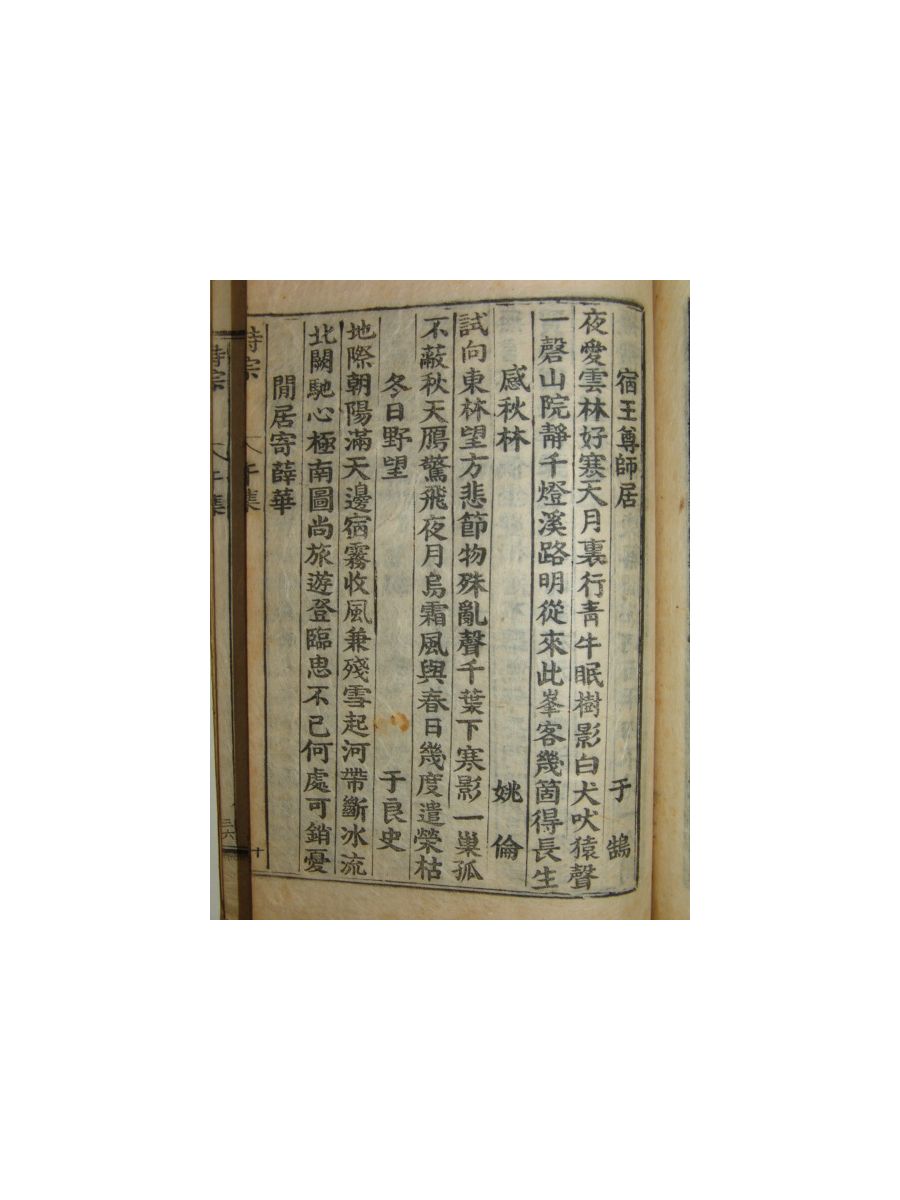 宿王尊師居 于鵠
夜愛雲林好寒天月裏行青牛眠樹影白犬吠猿聲
一磬山院靜千燈溪路明從來此峯客幾箇得長生
感秋林 姚倫
試向東林望方悲節物殊亂聲千葉下寒影一巢孤
不蔽秋天鴈驚飛夜月烏霜風與春日幾度遣榮枯
冬日野望 于良史
地際朝陽滿天邊宿霧收風兼殘雪起河帶斷冰流
北闕馳心極南圖尚旅遊登臨思不已何處可銷憂
閒居寄薛華
詩宗 午集 十
詩宗 集